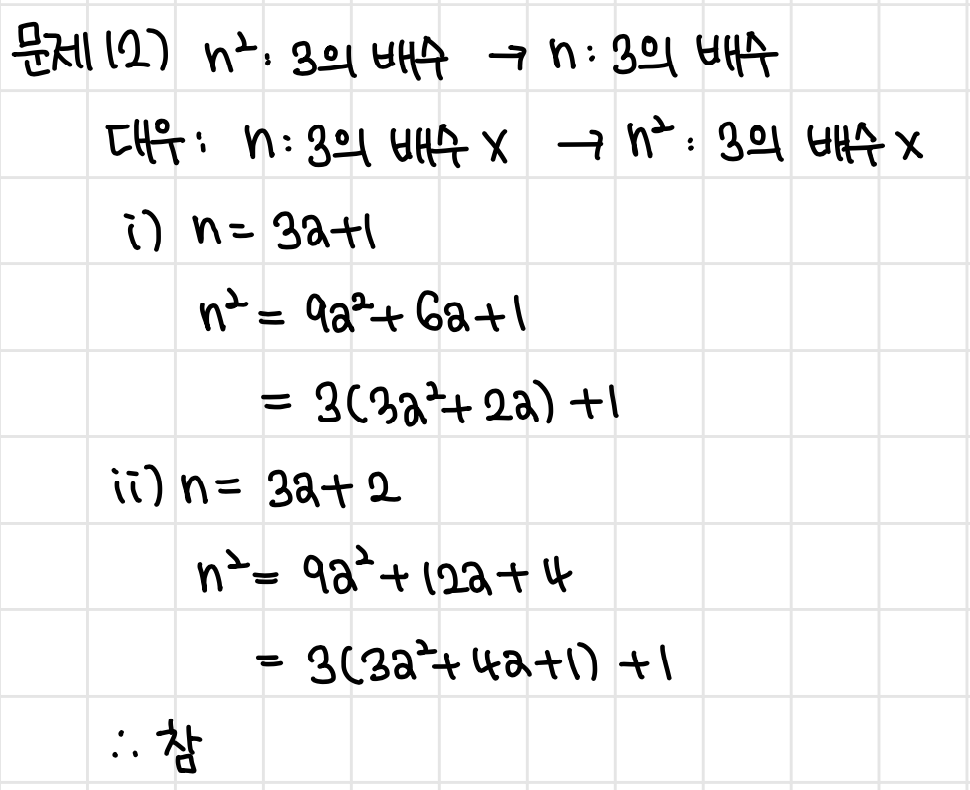 문제(2) n²: 3의 배수 → n: 3의 배수
대우: n: 3의 배수 x → n²: 3의 배수 x
i) n = 3a+1
n² = 9a²+6a+1
= 3(3a²+2a)+1
ii) n = 3a+2
n² = 9a²+12a+4
= 3(3a²+4a+1)+1
∴ 참